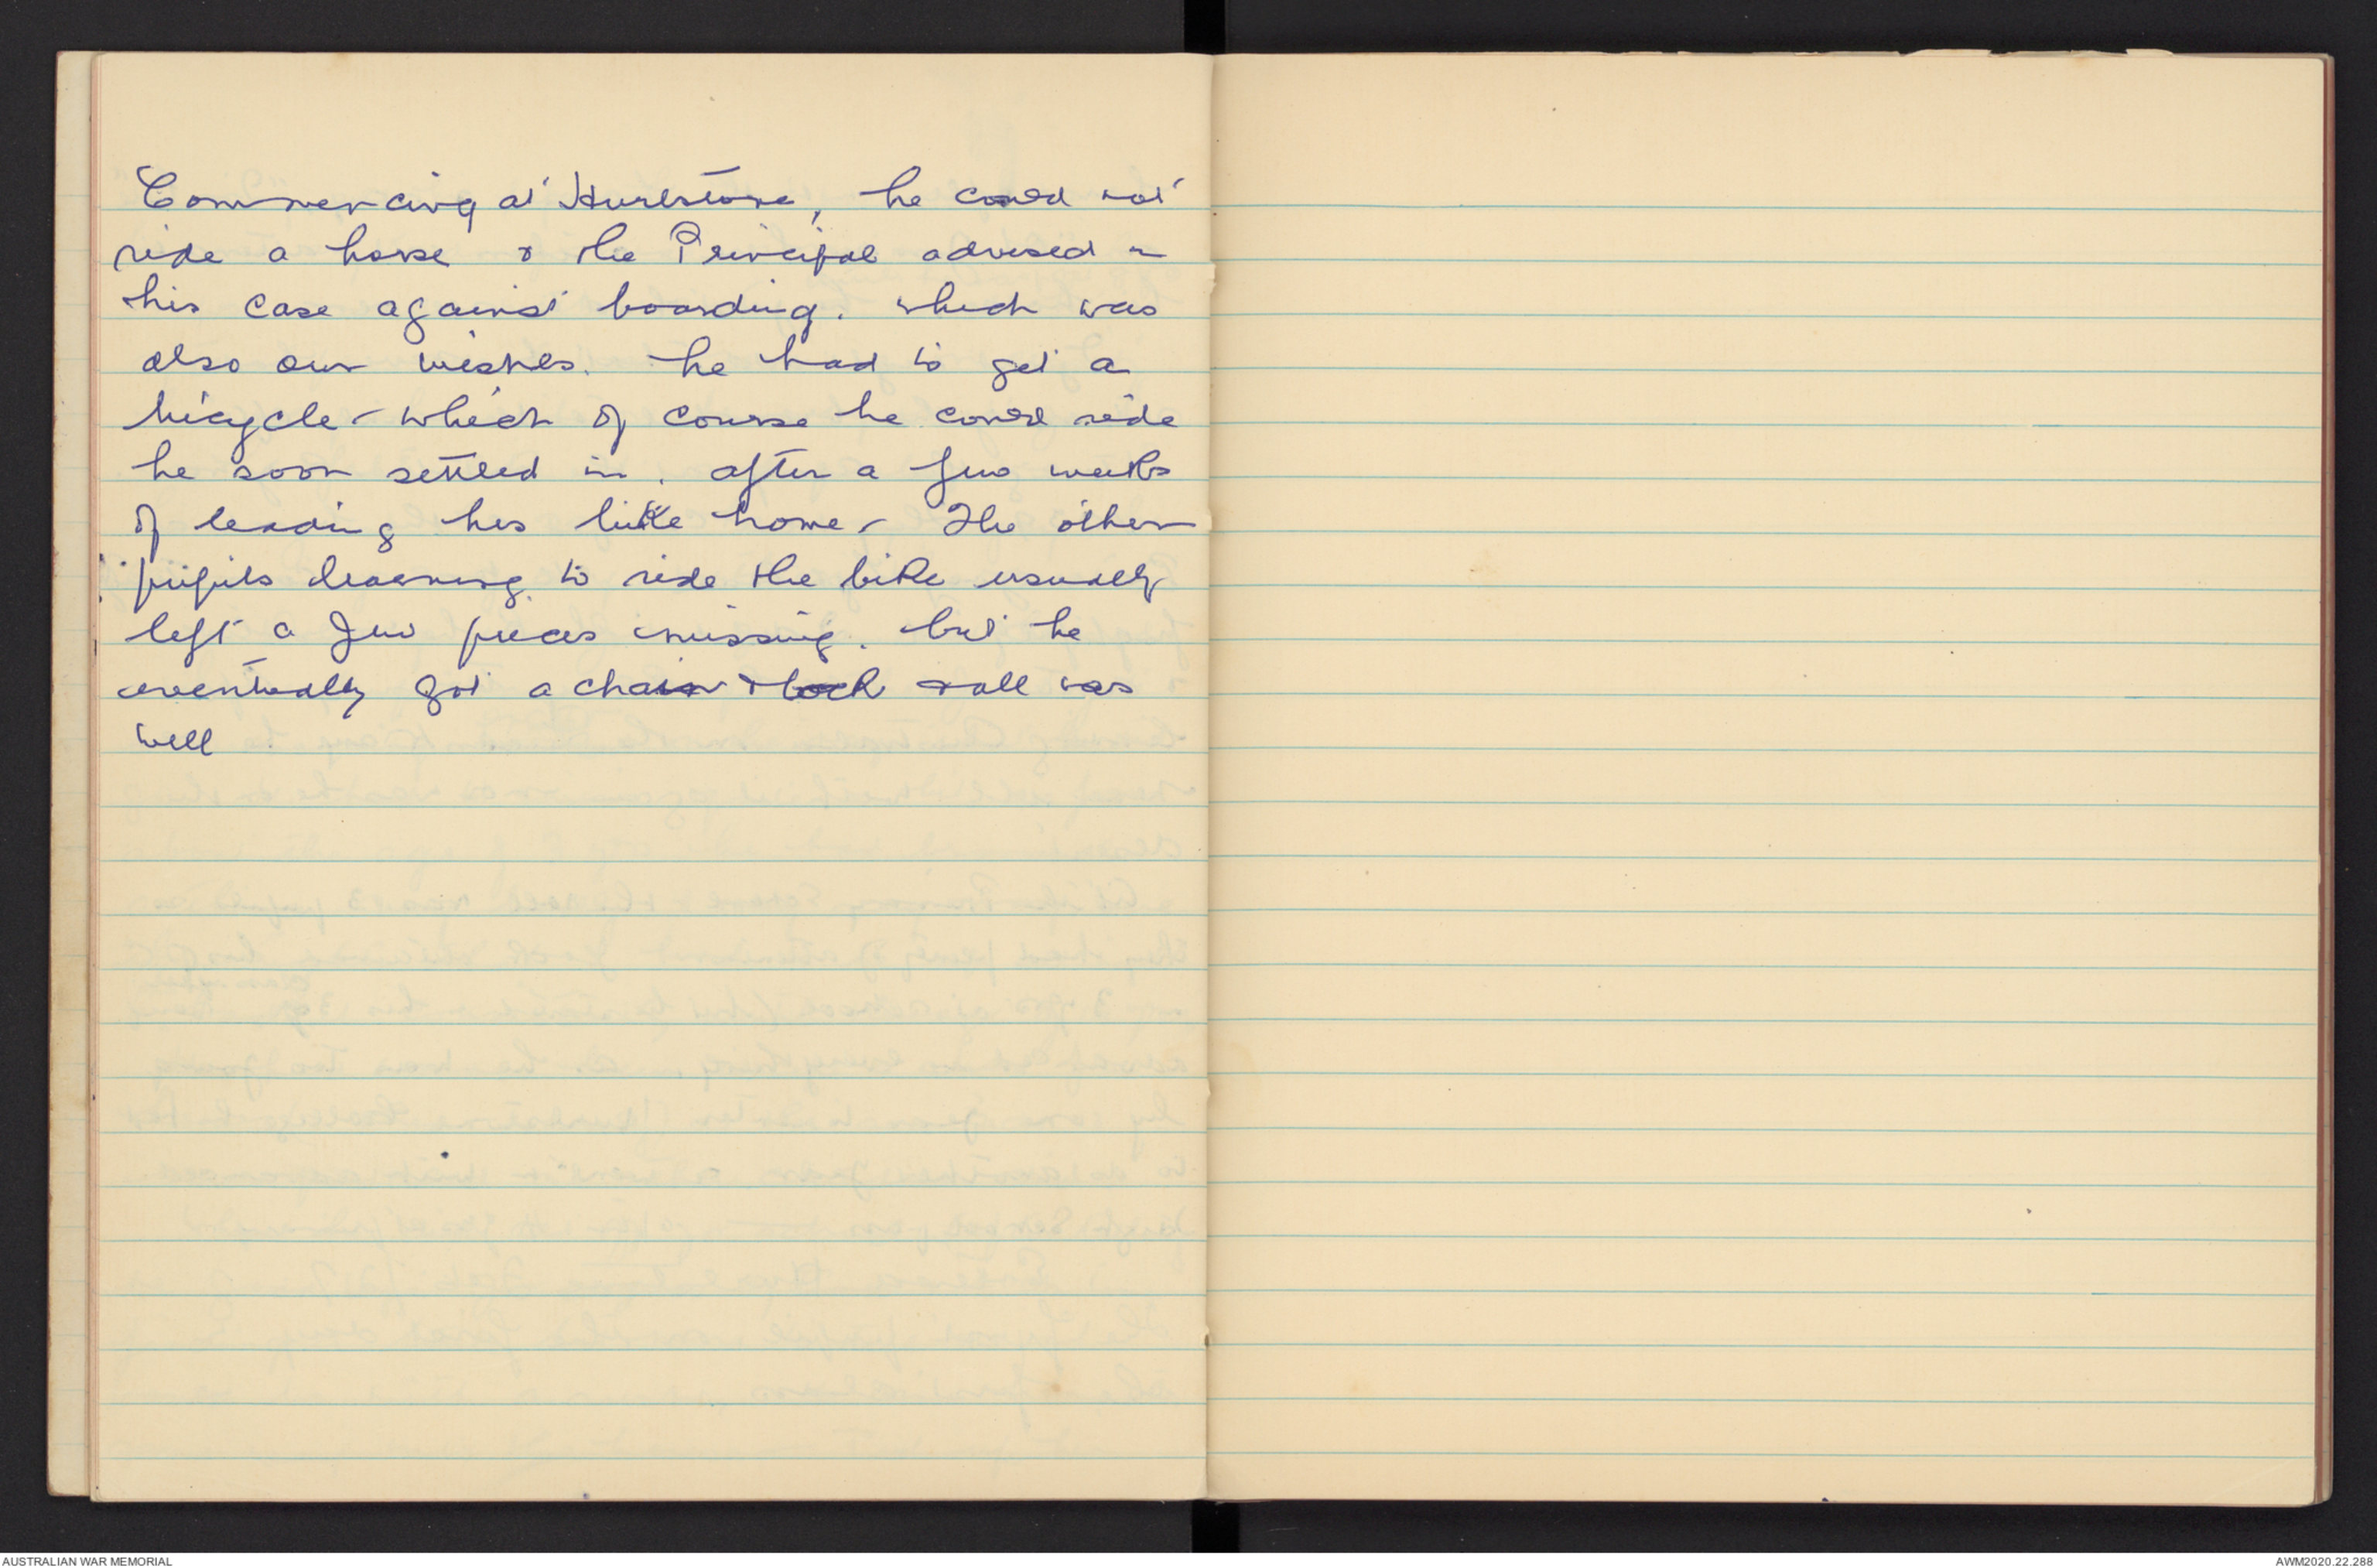 Commencing at Hurlstone, he could not
ride a horse & the Principal advised in
his case against boarding. which was
also our wishes. he had to get a
bicycle - which of course he could ride
he soon settled in. after a few weeks
of leading his bike home - The other
pupils learning to ride the bike usually
left a few pieces missing. but he
eventually got a chain & lock & all was
well
AUSTRALIAN WAR MEMORIAL
AWM2020.22.288